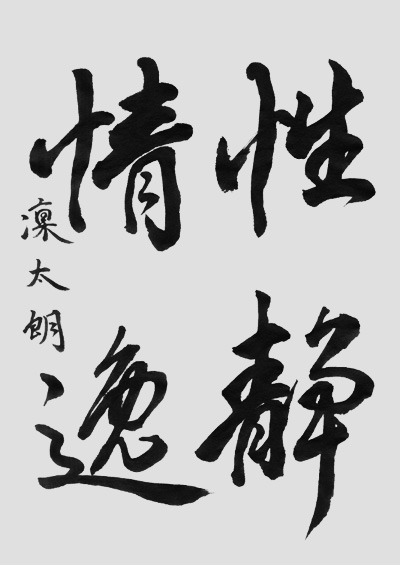 性静
情逸
凜太朗